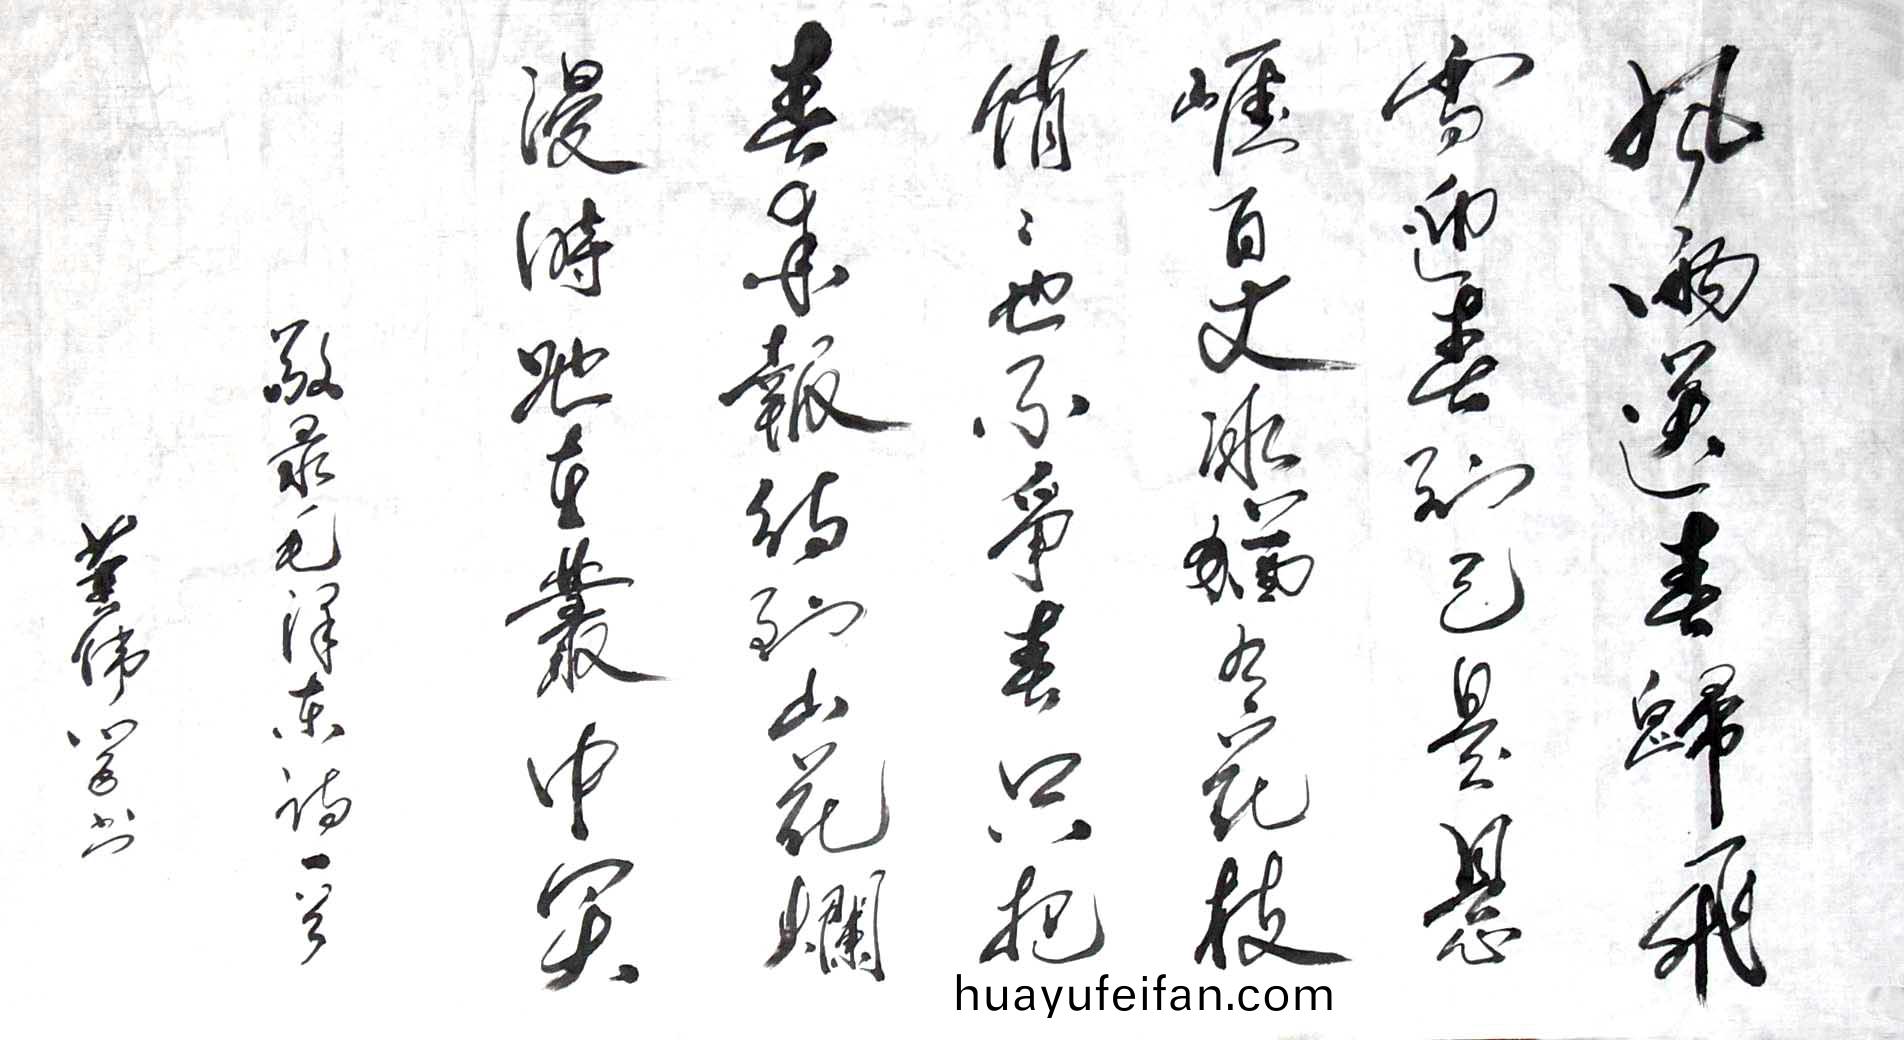 風雨送春歸飛
雪迎春到已是悬
崖百丈冰猶有花枝
俏〻也不爭春只把
春來報待到山花爛
漫時她在叢中笑
敬录毛澤东詩一首
书
huayufeifan.com